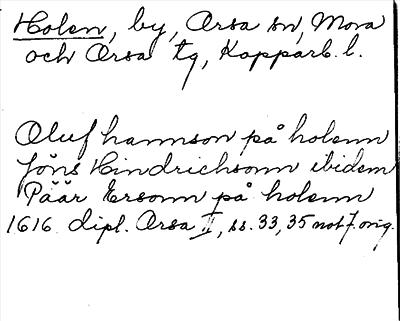 Holen, by, Orsa sn, Mora
och Orsa tg, Kopparb. l.
Oluf hannson på holenn
Jöns Hindrichsonn ibidem
Päär Ersonn på holenn
1616 dipl. Orsa II, ss. 33, 35 not 7. orig.